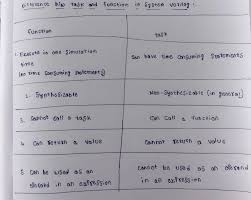 Difference b/w Task and Function in System Verilog :
Function
Task
1. Execute in one simulation
time
(no time consuming statements)
Can have time consuming statements
2. Synthesizable
Non-Synthesizable (in general)
3. Cannot call a task
Can call a function
4. Can return a value
Cannot return a value
5. Can be used as an
operand in an expression
Cannot be used as an operand
in an expression